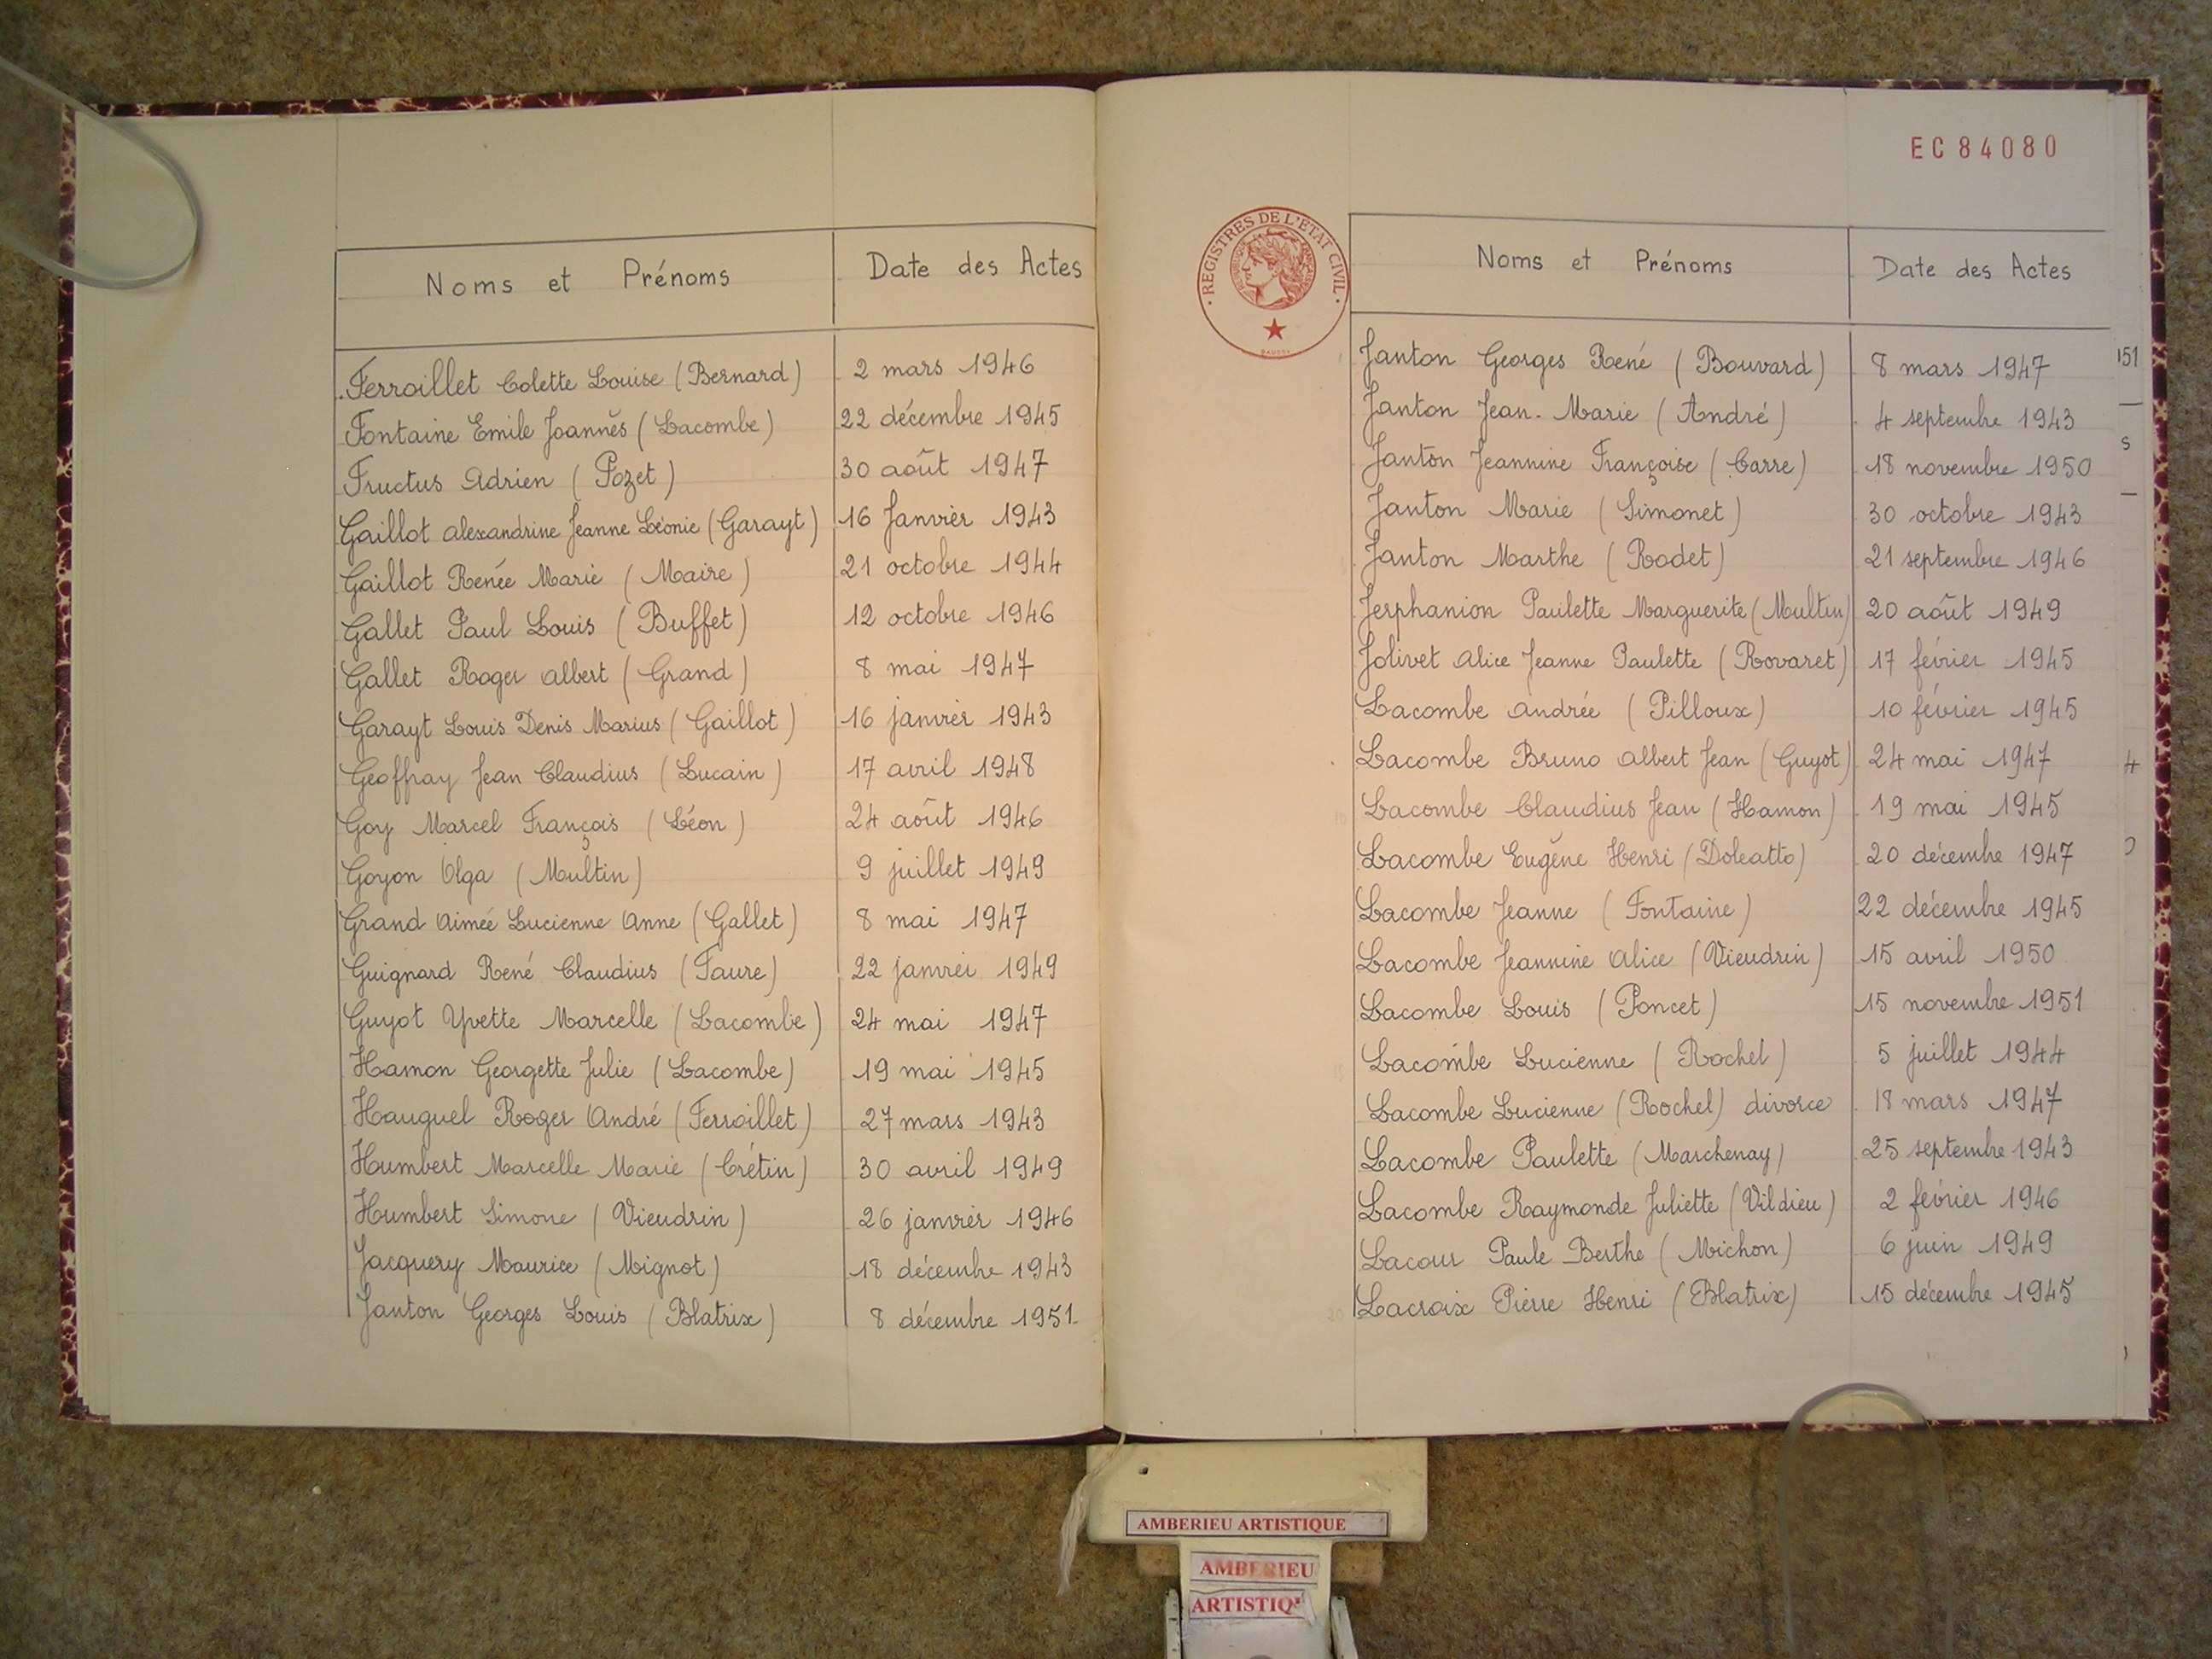 Noms et Prénoms Date des Actes
Ferroillet Colette Louise (Bernard) 2 mars 1946
Fontaine Emile Joannès (Lacombe) 22 décembre 1945
Fructus Adrien (Pozet) 30 août 1947
Gaillot Alexandrine Jeanne Léonie (Garayt) 16 Janvier 1943
Gaillot Renée Marie (Maire) 21 octobre 1944
Gallet Paul Louis (Buffet) 12 octobre 1946
Gallet Roger Albert (Grand) 8 mai 1947
Garayt Louis Denis Marius (Gaillot) 16 janvier 1943
Geoffray Jean Claudius (Lucain) 17 avril 1948
Goy Marcel François (Léon) 24 août 1946
Goyon Olga (Multin) 9 juillet 1949
Grand Aimée Lucienne Anne (Gallet) 8 mai 1947
Guignard René Claudius (Faure) 22 janvier 1949
Guyot Yvette Marcelle (Lacombe) 24 mai 1947
Hamon Georgette Julie (Lacombe) 19 mai 1945
Hauguel Roger André (Ferroillet) 27 mars 1943
Humbert Marcelle Marie (Crétin) 30 avril 1949
Humbert Simone (Vieudrin) 26 janvier 1946
Jacquery Maurice (Mignot) 18 décembre 1943
Janton Georges Louis (Blatrix) 8 décembre 1951
EC84080
REGISTRES DE L'ÉTAT CIVIL
Noms et Prénoms Date des Actes
Janton Georges René (Bouvard) 8 mars 1947
Janton Jean-Marie (André) 4 septembre 1943
Janton Jeannine Françoise (Carre) 18 novembre 1950
Janton Marie (Simonet) 30 octobre 1943
Janton Marthe (Rodet) 21 septembre 1946
Jerphanion Paulette Marguerite (Multin) 20 août 1949
Jolivet Alice Jeanne Paulette (Rovaret) 17 février 1945
Lacombe Andrée (Pilloux) 10 février 1945
Lacombe Bruno Albert Jean (Guyot) 24 mai 1947
Lacombe Claudius Jean (Hamon) 19 mai 1945
Lacombe Eugène Henri (Doleatto) 20 décembre 1947
Lacombe Jeanne (Fontaine) 22 décembre 1945
Lacombe Jeannine Alice (Vieudrin) 15 avril 1950
Lacombe Louis (Poncet) 15 novembre 1951
Lacombe Lucienne (Rochel) 5 juillet 1944
Lacombe Lucienne (Rochel) divorce 18 mars 1947
Lacombe Paulette (Marchenay) 25 septembre 1943
Lacombe Raymonde Juliette (Vildieu) 2 février 1946
Lacour Paule Berthe (Michon) 6 juin 1949
Lacroix Pierre Henri (Blatrix) 15 décembre 1945
151
s
4
AMBERIEU ARTISTIQUE
AMBERIEU
ARTISTIQ